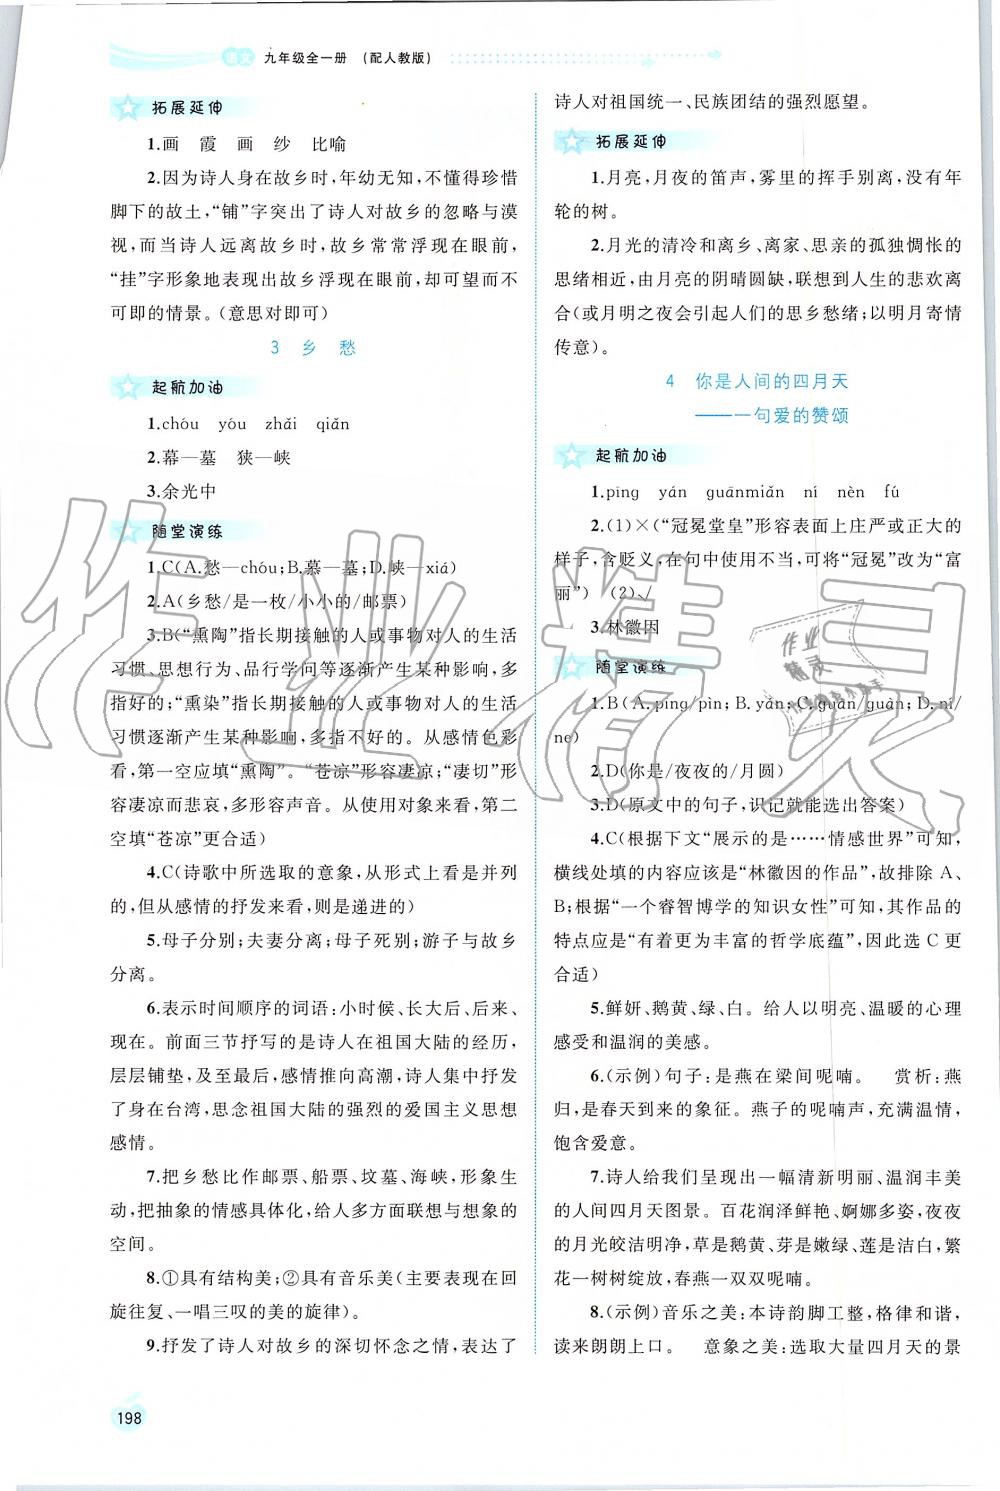 语文 九年级全一册 (配人教版)
拓展延伸
1.画 霞 画 纱 比喻
2.因为诗人身在故乡时,年幼无知,不懂得珍惜
脚下的故土,“铺”字突出了诗人对故乡的忽略与漠
视,而当诗人远离故乡时,故乡常常浮现在眼前,
“挂”字形象地表现出故乡浮现在眼前,却可望而不
可即的情景。(意思对即可)
3 乡 愁
起航加油
1.chóu yóu zhǎi qiǎn
2.幕—墓 狭—峡
3.余光中
随堂演练
1.C(A.愁—chóu;B.慕—墓;D.峡—xiá)
2.A(乡愁/是一枚/小小的/邮票)
3.B(“熏陶”指长期接触的人或事物对人的生活
习惯、思想行为、品行学问等逐渐产生某种影响,多
指好的;“熏染”指长期接触的人或事物对人的生活
习惯逐渐产生某种影响,多指不好的。从感情色彩
看,第一空应填“熏陶”。“苍凉”形容凄凉;“凄切”形
容凄凉而悲哀,多形容声音。从使用对象来看,第二
空填“苍凉”更合适)
4.C(诗歌中所选取的意象,从形式上看是并列
的,但从感情的抒发来看,则是递进的)
5.母子分别;夫妻分离;母子死别;游子与故乡
分离。
6.表示时间顺序的词语:小时候、长大后、后来、
现在。前面三节抒写的是诗人在祖国大陆的经历,
层层铺垫,及至最后,感情推向高潮,诗人集中抒发
了身在台湾,思念祖国大陆的强烈的爱国主义思想
感情。
7.把乡愁比作邮票、船票、坟墓、海峡,形象生
动,把抽象的情感具体化,给人多方面联想与想象的
空间。
8.①具有结构美;②具有音乐美(主要表现在回
旋往复、一唱三叹的美的旋律)。
9.抒发了诗人对故乡的深切怀念之情,表达了
诗人对祖国统一、民族团结的强烈愿望。
拓展延伸
1.月亮,月夜的笛声,雾里的挥手别离,没有年
轮的树。
2.月光的清冷和离乡、离家、思亲的孤独惆怅的
思绪相近,由月亮的阴晴圆缺,联想到人生的悲欢离
合(或月明之夜会引起人们的思乡愁绪;以明月寄情
传意)。
4 你是人间的四月天
——一句爱的赞颂
起航加油
1.pīng yán guānmiǎn ní nèn fú
2.(1)×(“冠冕堂皇”形容表面上庄严或正大的
样子,含贬义,在句中使用不当,可将“冠冕”改为“富
丽”) (2)√
3.林徽因
随堂演练
1.B(A.pīng/pīn;B.yán;C.guān/guān;D.ní/
ne)
2.D(你是/夜夜的/月圆)
3.D(原文中的句子,识记就能选出答案)
4.C(根据下文“展示的是……情感世界”可知,
横线处填的内容应该是“林徽因的作品”,故排除 A、
B;根据“一个睿智博学的知识女性”可知,其作品的
特点应是“有着更为丰富的哲学底蕴”,因此选 C 更
合适)
5.鲜妍、鹅黄、绿、白。给人以明亮、温暖的心理
感受和温润的美感。
6.(示例)句子:是燕在梁间呢喃。 赏析:燕
归,是春天到来的象征。燕子的呢喃声,充满温情,
饱含爱意。
7.诗人给我们呈现出一幅清新明丽、温润丰美
的人间四月天图景。百花润泽鲜艳、婀娜多姿,夜夜
的月光皎洁明净,草是鹅黄、芽是嫩绿、莲是洁白,繁
花一树树绽放,春燕一双双呢喃。
8.(示例)音乐之美:本诗韵脚工整,格律和谐,
读来朗朗上口。 意象之美:选取大量四月天的景
198
作业精灵
作业
精灵